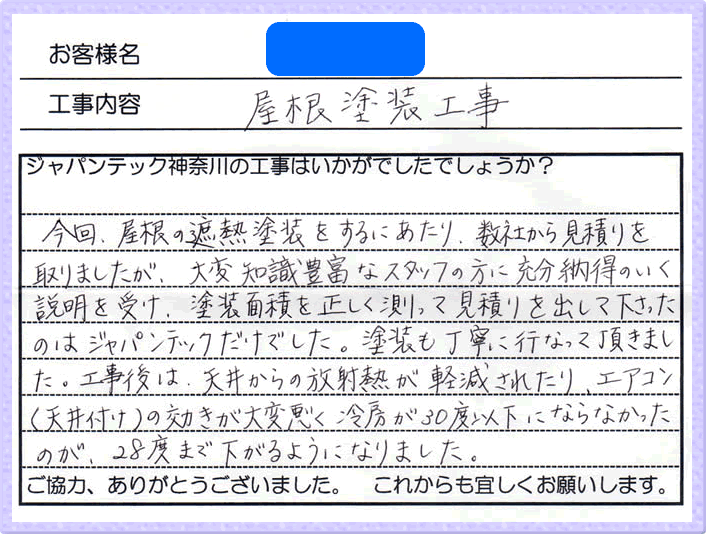 お客様名
工事内容 屋根塗装工事
ジャパンテック神奈川の工事はいかがでしたでしょうか？
今回、屋根の遮熱塗装をするにあたり、数社から見積りを
取りましたが、大変知識豊富なスタッフの方に充分納得のいく
説明を受け、塗装面積を正しく測って見積りを出して下さった
のはジャパンテックだけでした。塗装も丁寧に行なって頂きまし
た。工事後は、天井からの放射熱が軽減されたり、エアコン
(天井付け)の効きが大変悪く冷房が30度以下にならなかった
のが、28度まで下がるようになりました。
ご協力、ありがとうございました。 これからも宜しくお願いします。